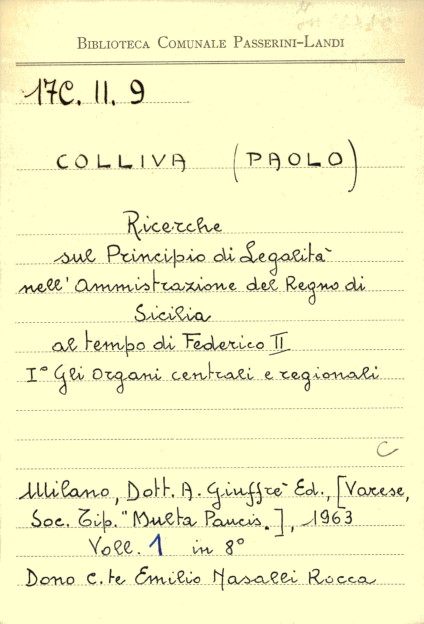 BIBLIOTECA COMUNALE PASSERINI-LANDI
17C. II. 9
COLLIVA (PAOLO)
Ricerche
sul Principio di Legalità
nell'Ammistrazione del Regno di
Sicilia
al tempo di Federico II
I° Gli Organi centrali e regionali
C
Milano, Dott. A. Giuffrè Ed., [Varese,
Soc. Tip. "Multa Paucis.], 1963
Voll. 1 in 8°
Dono C.te Emilio Nasalli Rocca